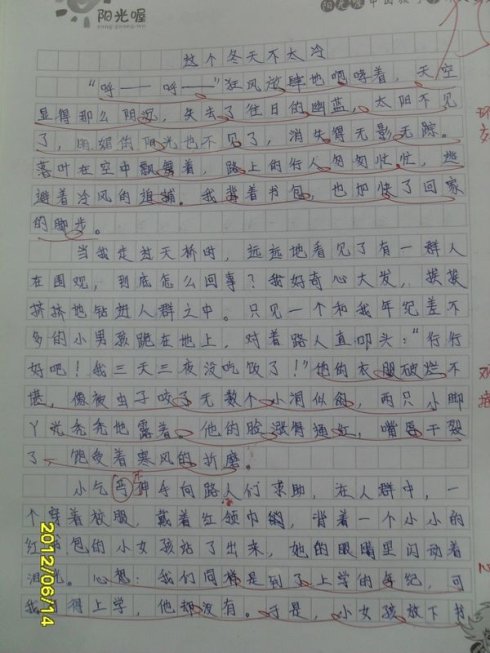 阳光喔
这个冬天不太冷
“呼——呼——”狂风放肆地咆哮着，天空
显得那么阴沉，失去了往日的幽蓝，太阳不见
了，明媚的阳光也不见了，消失得无影无踪。
落叶在空中飘舞着，路上的行人匆匆忙忙，逃
避着冷风的追捕。我背着书包，也加快了回家
的脚步。
当我走过天桥时，远远地看见了有一群人
在围观，到底怎么回事？我好奇心大发，挨挨
挤挤地钻进人群之中。只见一个和我年纪差不
多的小男孩跪在地上，对着路人直叩头：“行行
好吧！我三天三夜没吃饭了！”他的衣服破烂不
堪，像被虫子咬了无数个小洞似的，两只小脚
丫光秃秃地露着。他的脸涨得通红，嘴唇干裂
了，饱受着寒风的折磨。
小气丐伸手向路人们求助，在人群中，一
个穿着校服，戴着红领巾的，背着一个小小的
红书包的小女孩站了出来，她的眼睛里闪动着
泪光。心想：我们同样是到了上学的年纪，可
我 得上学，他却没有。于是，小女孩放下书
2012/06/14